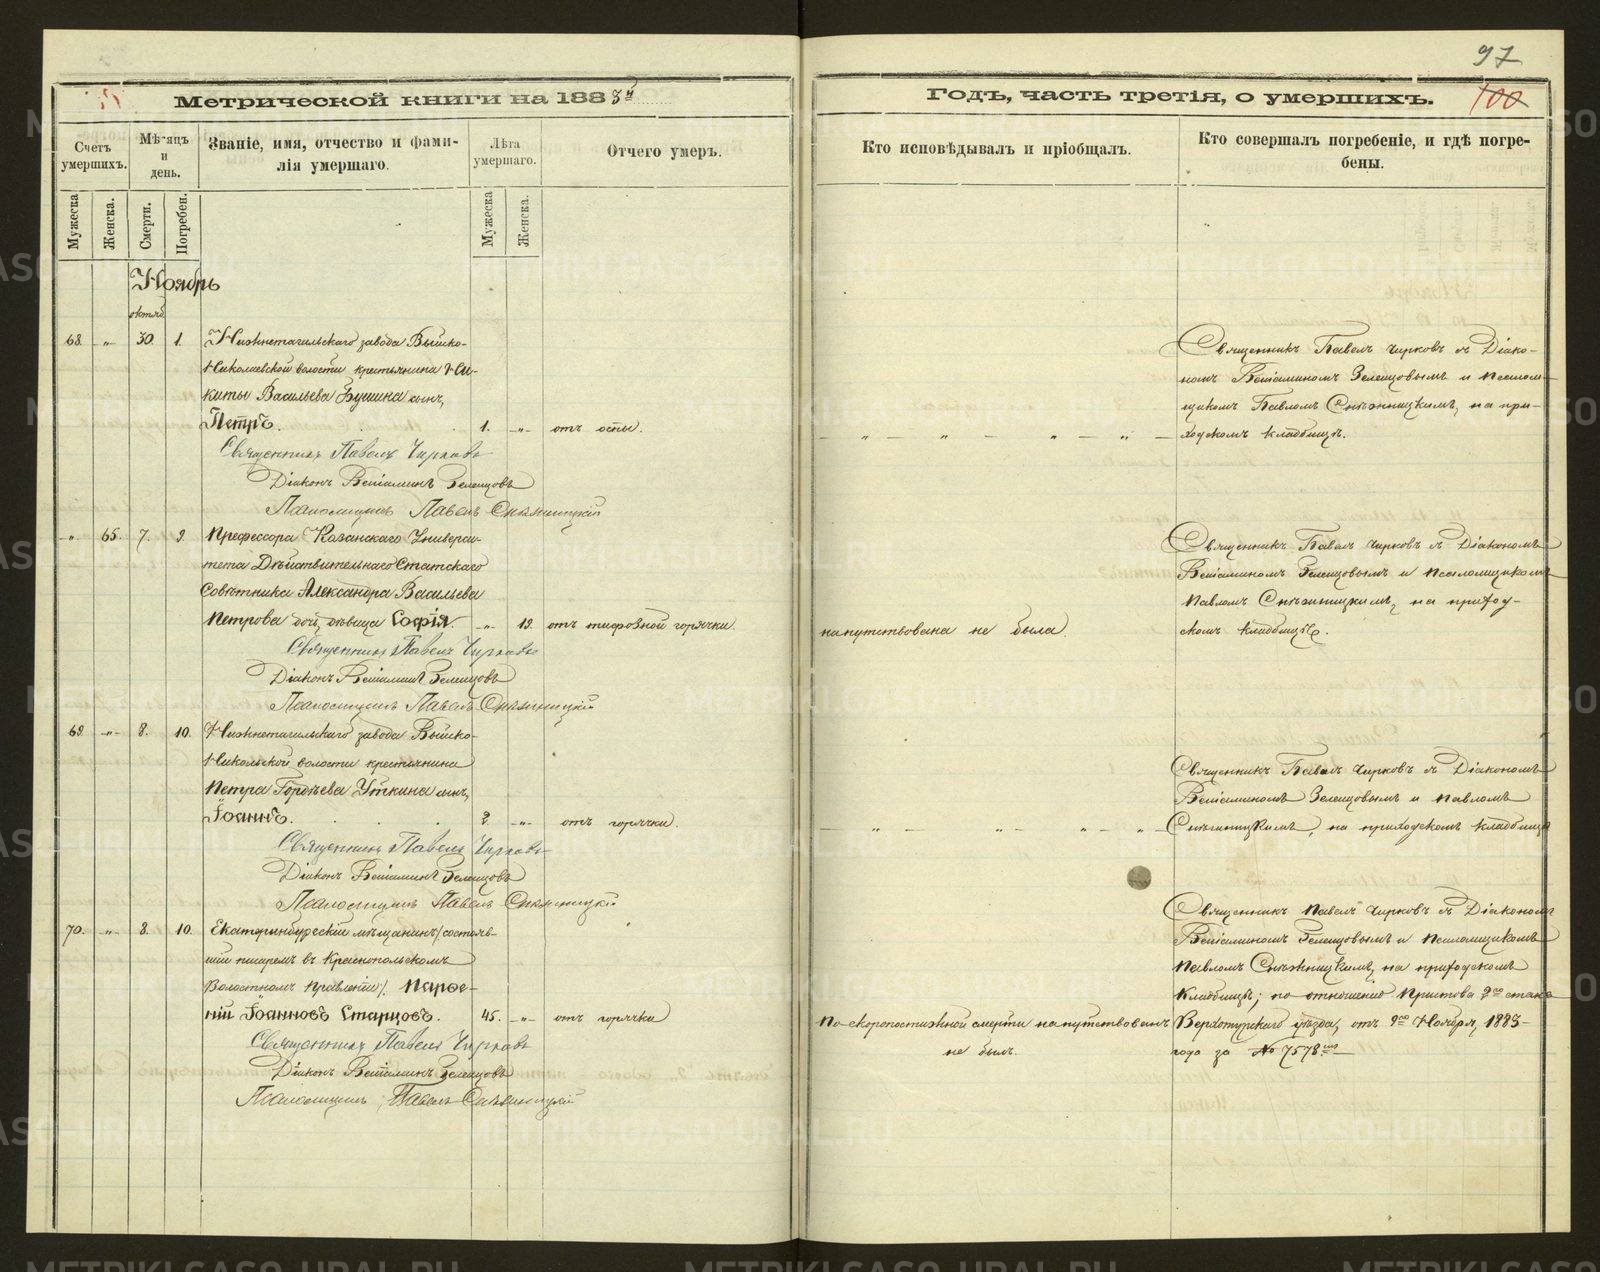 97
100
Метрической книги на 1883й
Годъ, часть третія, о умершихъ.
Счетъ умершихъ.
Мѣсяцъ и день.
Званіе, имя, отчество и фами-
лія умершаго.
Лѣта умершаго.
Отчего умеръ.
Кто исповѣдывалъ и пріобщалъ.
Кто совершалъ погребеніе, и гдѣ погре-
бены.
Мужеска
Женска.
Смерти.
Погребен.
Мужеска
Женска.
Ноябрь
октяб
68. „ 30. 1. Нижнетагильскаго завода Выйско-
Николаевской волости крестьянина Ни-
киты Васильева Бушина сынъ,
Петръ. 1. „ отъ оспы.
Священникъ Павелъ Чирковъ съ Діако-
номъ Веніаминомъ Зеленцовымъ и псалом-
щикомъ Павломъ Снѣжницкимъ, на при-
ходскомъ кладбищѣ.
Священникъ Павелъ Чирковъ
Діаконъ Веніаминъ Зеленцовъ
Псаломщикъ Павелъ Снѣжницкій
„ 65. 7. 9. Профессора Казанскаго Универси-
тета Дѣйствительнаго Статскаго
Совѣтника Александра Васильева
Петрова дочь, дѣвица Софія. „ 19. отъ тифозной горячки.
напутствована не была.
Священникъ Павелъ Чирковъ съ Діакономъ
Веніаминомъ Зеленцовымъ и псаломщикомъ
Павломъ Снѣжницкимъ, на приход-
скомъ кладбищѣ.
Священникъ Павелъ Чирковъ
Діаконъ Веніаминъ Зеленцовъ
Псаломщикъ Павелъ Снѣжницкій
69. „ 8. 10. Нижнетагильскаго завода Выйско-
Никольской волости крестьянина
Петра Гордѣева Уткина сынъ,
Іоаннъ. 2. „ отъ горячки.
Священникъ Павелъ Чирковъ съ Діакономъ
Веніаминомъ Зеленцовымъ и Павломъ
Снѣжницкимъ, на приходскомъ кладбищѣ
Священникъ Павелъ Чирковъ
Діаконъ Веніаминъ Зеленцовъ
Псаломщикъ Павелъ Снѣжницкій
70. „ 8. 10. Екатеринбургскій мѣщанинъ /состояв-
шій писаремъ въ Краснопольскомъ
Волостномъ Правленіи/. Парѳе-
ній Іоанновъ Старцовъ. 45. „ отъ горячки
По скоропостижной смерти напутствованъ
не былъ.
Священникъ Павелъ Чирковъ съ Діакономъ
Веніаминомъ Зеленцовымъ и псаломщикомъ
Павломъ Снѣжницкимъ, на приходскомъ
кладбищѣ; по отношенію Пристава 2го стана
Верхотурскаго уѣзда, отъ 9го Ноября, 1883
года за № 7578мъ
Священникъ Павелъ Чирковъ
Діаконъ Веніаминъ Зеленцовъ
Псаломщикъ Павелъ Снѣжницкій
METRIKI.GASO-URAL.RU